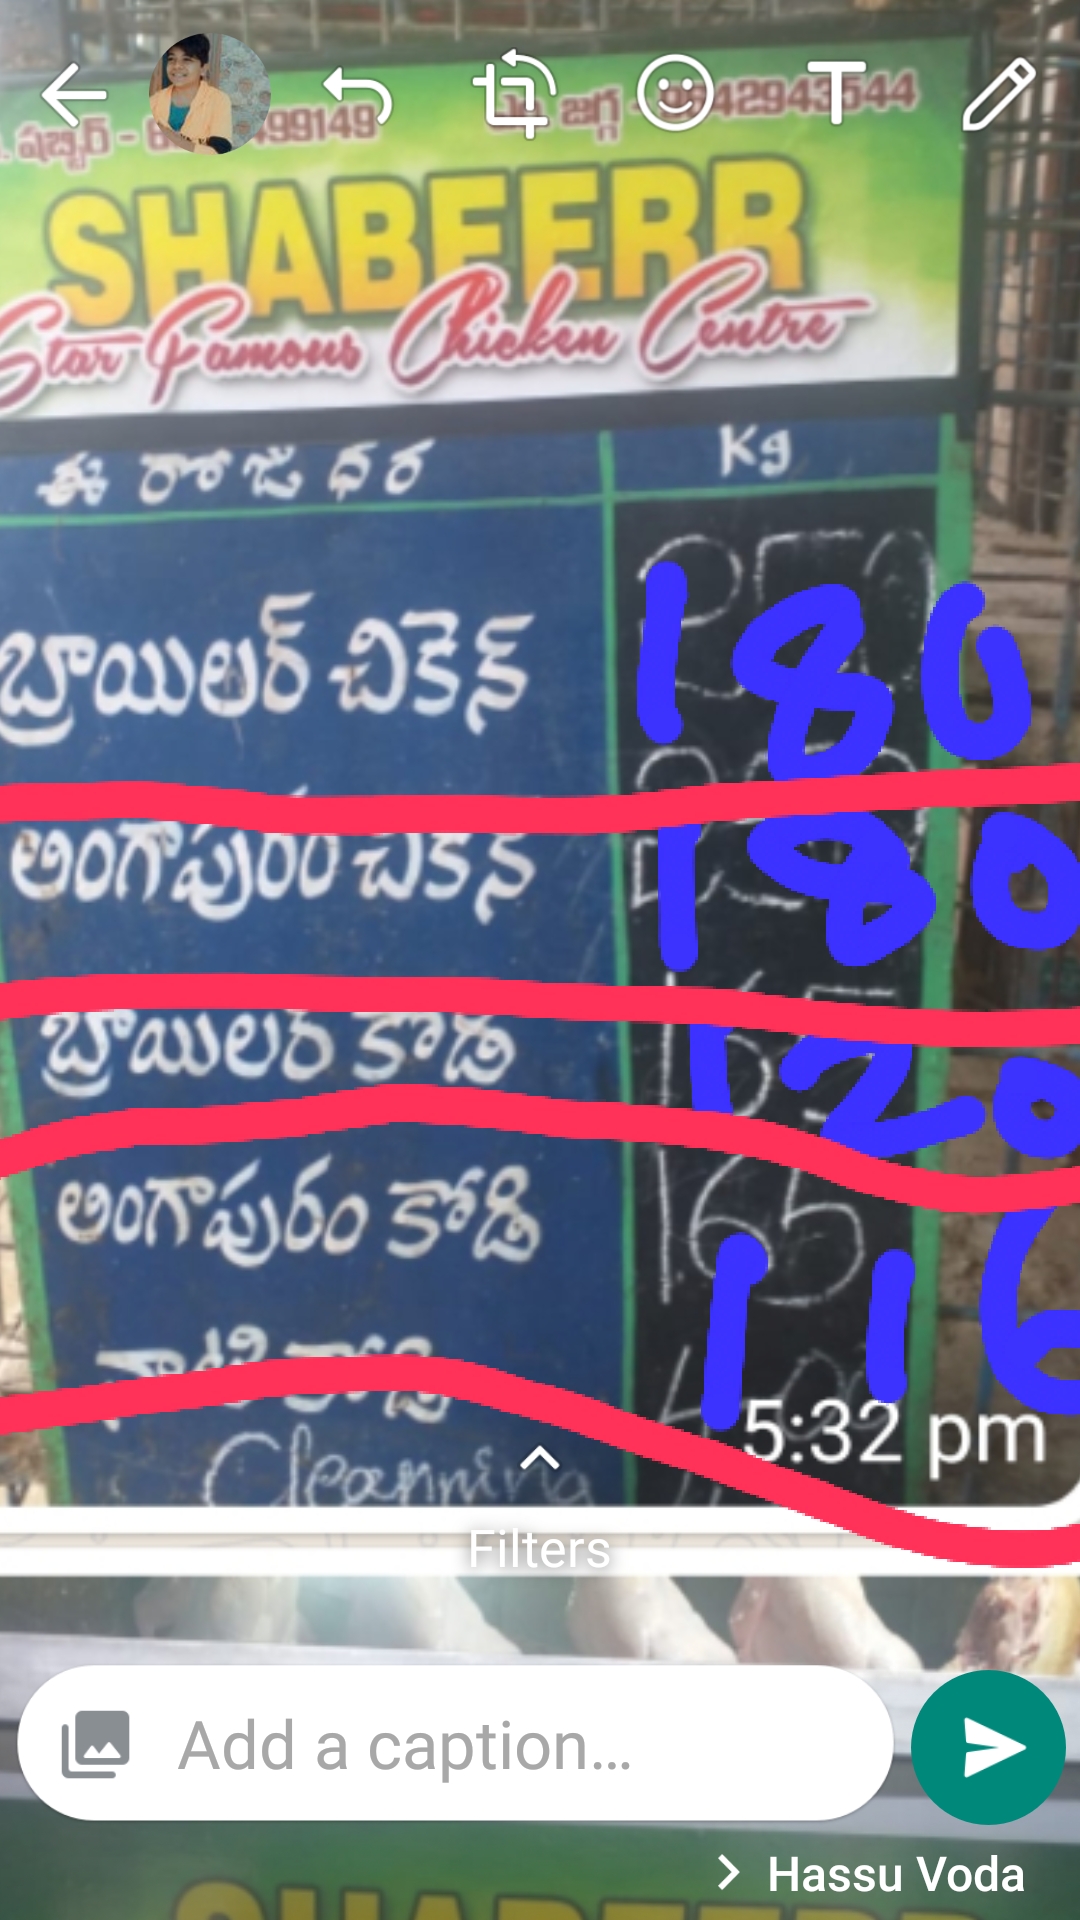 షబ్బీర్ -
99149
జగ్గ - 9642943544
SHABEERR
Star Famous Chicken Centre
ఈ రోజు ధర
Kg
బ్రాయిలర్ చికెన్
180
అంగాపురం చికెన్
180
బ్రాయిలర్ కోడి
120
అంగాపురం కోడి
165
116
నాటి కోడి
Cleanning
5:32 pm
Filters
Add a caption...
Hassu Voda
SHABEERR